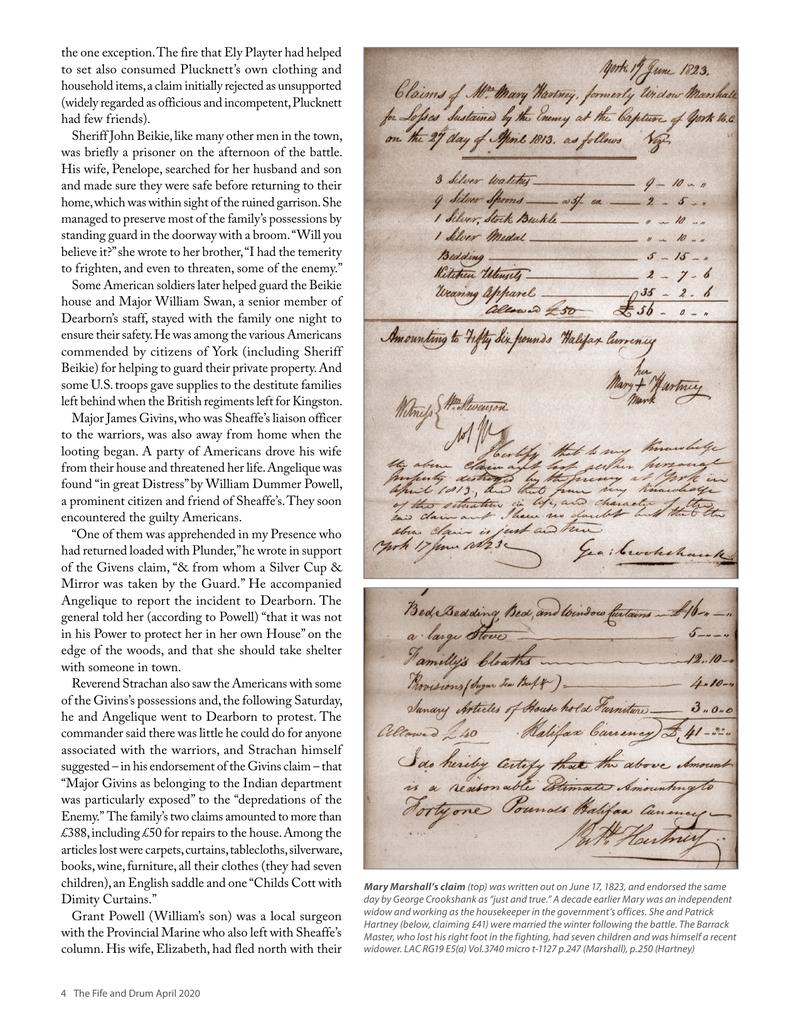 the one exception. The fire that Ely Playter had helped
to set also consumed Plucknett's own clothing and
household items, a claim initially rejected as unsupported
(widely regarded as officious and incompetent, Plucknett
had few friends).
Sheriff John Beikie, like many other men in the town,
was briefly a prisoner on the afternoon of the battle.
His wife, Penelope, searched for her husband and son
and made sure they were safe before returning to their
home, which was within sight of the ruined garrison. She
managed to preserve most of the family's possessions by
standing guard in the doorway with a broom. "Will you
believe it?" she wrote to her brother, "I had the temerity
to frighten, and even to threaten, some of the enemy."
Some American soldiers later helped guard the Beikie
house and Major William Swan, a senior member of
Dearborn's staff, stayed with the family one night to
ensure their safety. He was among the various Americans
commended by citizens of York (including Sheriff
Beikie) for helping to guard their private property. And
some U.S. troops gave supplies to the destitute families
left behind when the British regiments left for Kingston.
Major James Givins, who was Sheaffe's liaison officer
to the warriors, was also away from home when the
looting began. A party of Americans drove his wife
from their house and threatened her life. Angelique was
found "in great Distress" by William Dummer Powell,
a prominent citizen and friend of Sheaffe's. They soon
encountered the guilty Americans.
"One of them was apprehended in my Presence who
had returned loaded with Plunder," he wrote in support
of the Givens claim, "& from whom a Silver Cup &
Mirror was taken by the Guard." He accompanied
Angelique to report the incident to Dearborn. The
general told her (according to Powell) "that it was not
in his Power to protect her in her own House" on the
edge of the woods, and that she should take shelter
with someone in town.
Reverend Strachan also saw the Americans with some
of the Givins's possessions and, the following Saturday,
he and Angelique went to Dearborn to protest. The
commander said there was little he could do for anyone
associated with the warriors, and Strachan himself
suggested – in his endorsement of the Givins claim – that
"Major Givins as belonging to the Indian department
was particularly exposed" to the "depredations of the
Enemy." The family's two claims amounted to more than
£388, including £50 for repairs to the house. Among the
articles lost were carpets, curtains, tablecloths, silverware,
books, wine, furniture, all their clothes (they had seven
children), an English saddle and one "Childs Cott with
Dimity Curtains."
Grant Powell (William's son) was a local surgeon
with the Provincial Marine who also left with Sheaffe's
column. His wife, Elizabeth, had fled north with their
York 17 June 1823.
Claims of Mrs Mary Hartney, formerly Widow Marshall
for Losses Sustained by the Enemy at the Capture of York U.C
on the 27 day of April 1813. as follows Viz
3 Silver Watches 9 - 10 - "
9 Silver Spoons a 5/. ea 2 - 5 - "
1 Silver, Stock Buckle " - 10 - "
1 Silver Medal " - 10 - "
Bedding 5 - 15 - "
Kitchen Utensils 2 - 7 - 6
Wearing Apparel 35 - 2 - 6
Allowed £50 £56 - 0 - "
Amounting to Fifty Six pounds Halifax Currency
her
Mary + Hartney
mark
Witness Wm Stevenson
I Certify that to my Knowledge
the above Claimant lost personal
property destroyed by the Enemy at York in
April 1813, and that from my Knowledge
of the situation in life, and character of the
said claimant I have no doubt but that the
above claim is just and true
York 17 June 1823 Geo: Crookshank
Bed, Bedding, Bed, and Window Curtains £16 " - "
a large Stove 5 - - "
Familly's Cloaths 12 " 10 - "
Provisions (Sugar Tea Beef &) 4 " 10 - "
Sundry Articles of Household Furniture 3 " 0 " 0
Allowed £40 Halifax Currency £41 - - "
I do hereby Certify that the above Amount
is a reasonable Estimate Amounting to
Forty one Pounds Halifax Currency
Hartney
Mary Marshall's claim (top) was written out on June 17, 1823, and endorsed the same
day by George Crookshank as "just and true." A decade earlier Mary was an independent
widow and working as the housekeeper in the government's offices. She and Patrick
Hartney (below, claiming £41) were married the winter following the battle. The Barrack
Master, who lost his right foot in the fighting, had seven children and was himself a recent
widower. LAC RG19 E5(a) Vol.3740 micro t-1127 p.247 (Marshall), p.250 (Hartney)
4 The Fife and Drum April 2020